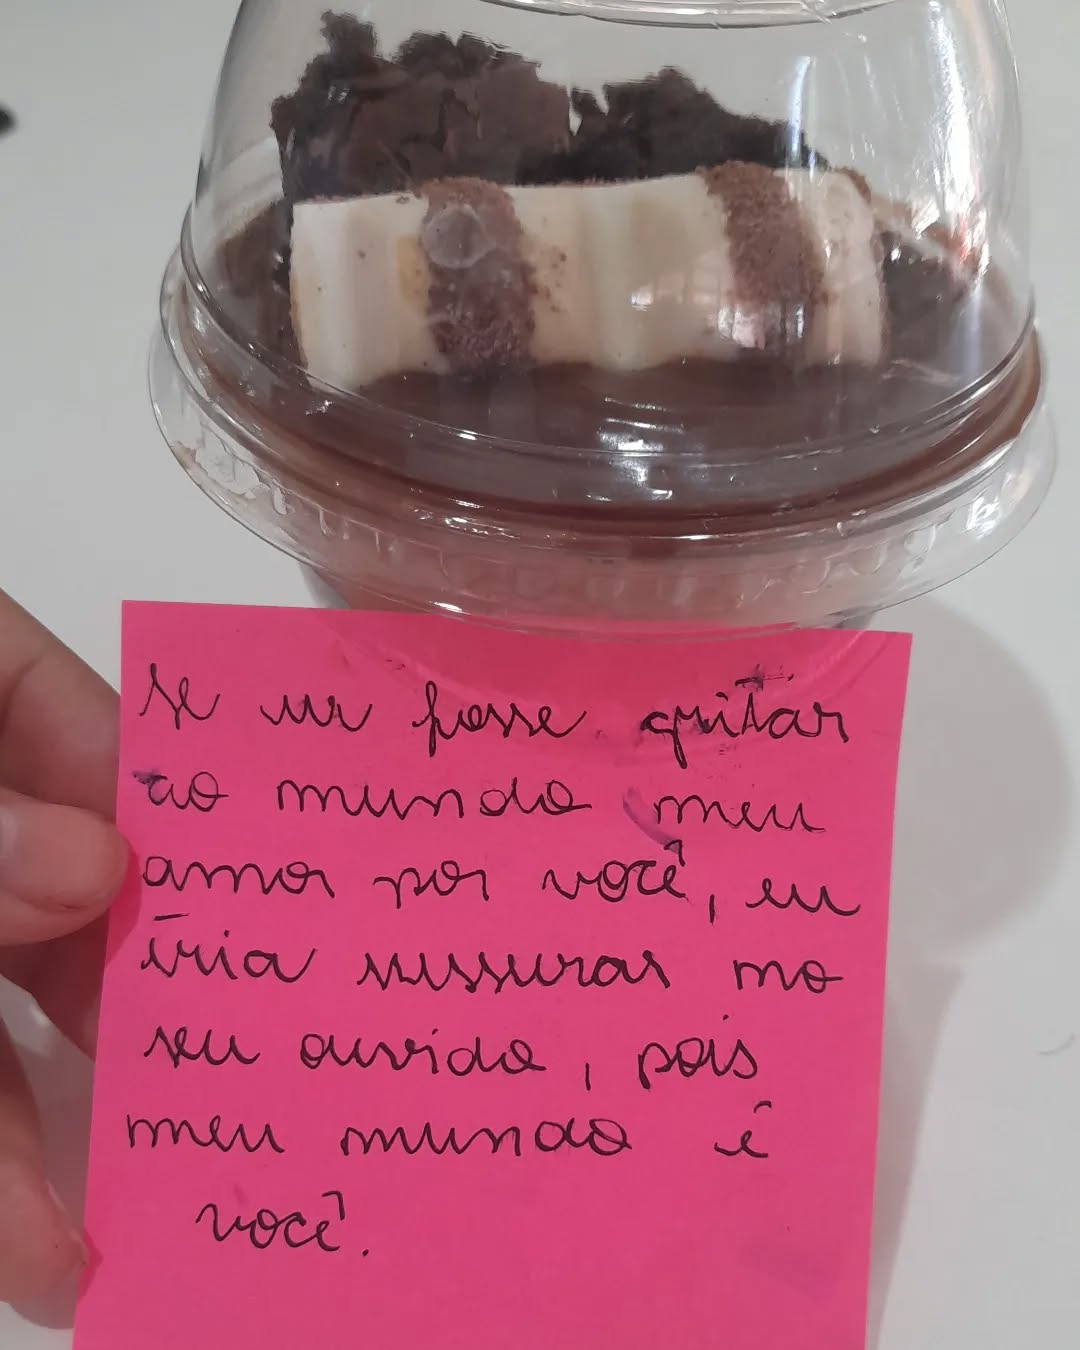 se eu fosse gritar
ao mundo meu
amor por você, eu
iria sussurar no
seu ouvido, pois
meu mundo é
você.